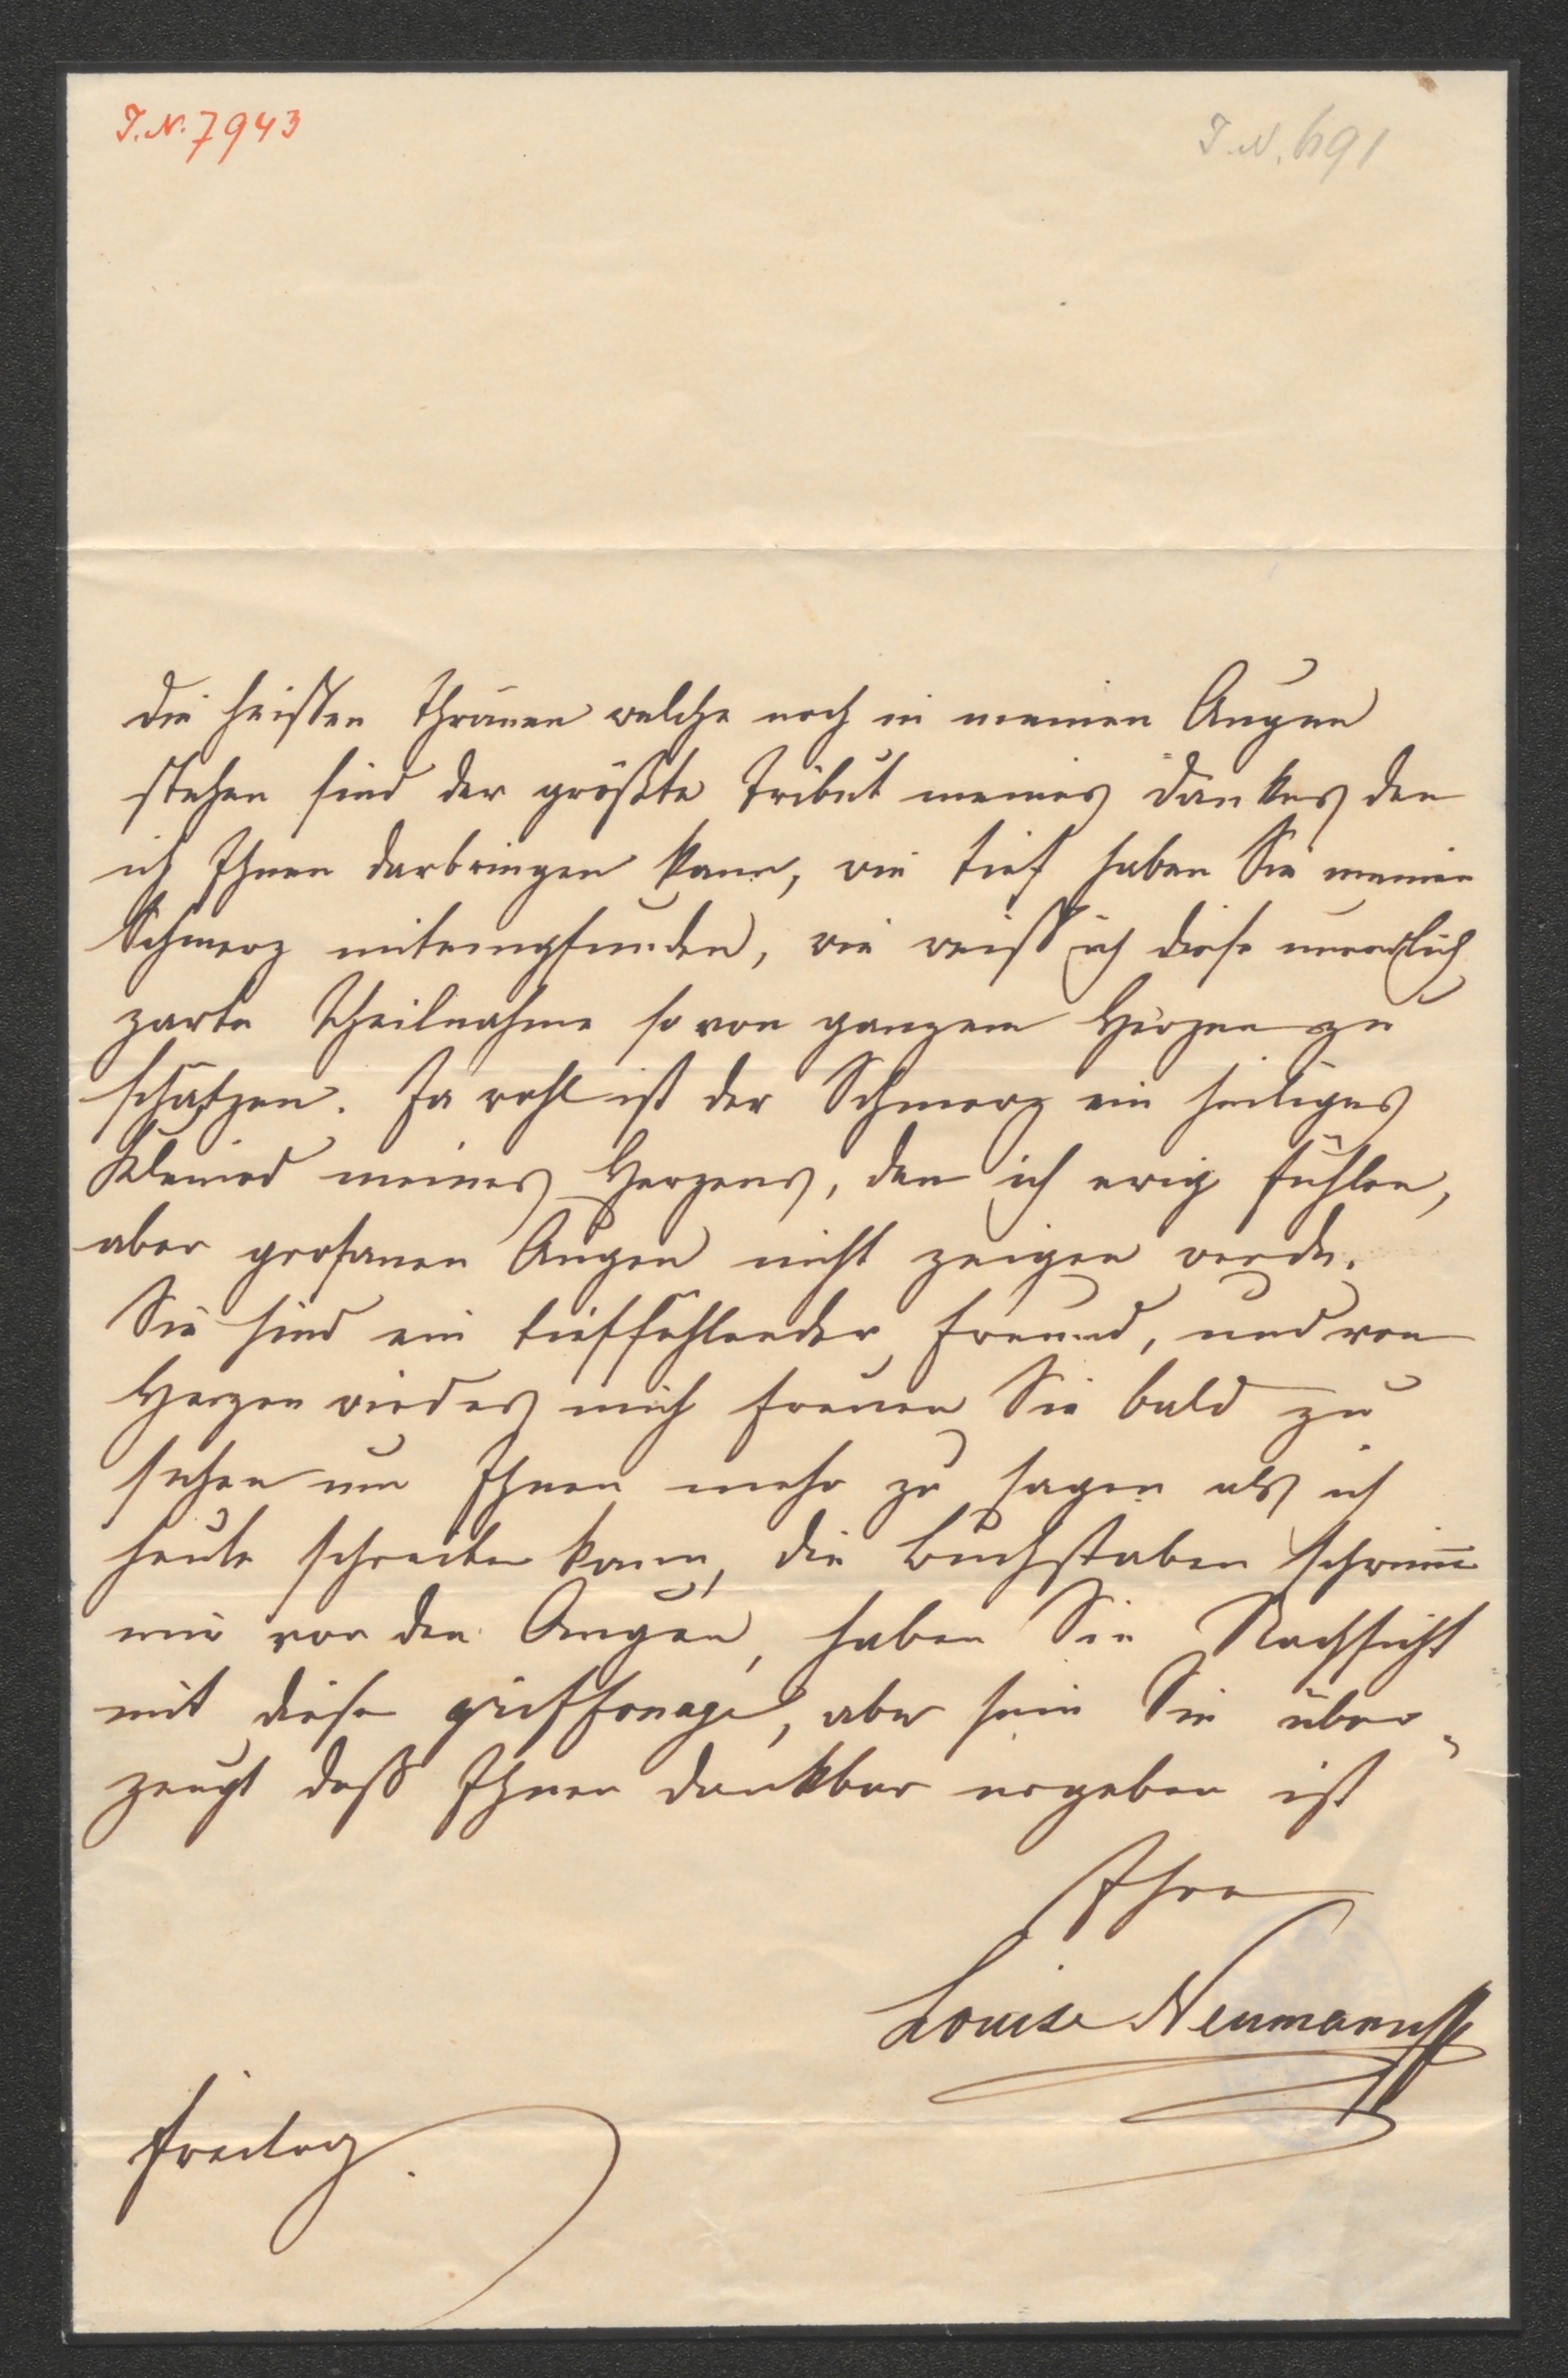 I.N. 7943
I.N. 691
Die heissen Thränen welche noch in meinen Augen
stehen sind der größte Tribut meines Dankes den
ich Ihnen darbringen kann, wie tief haben Sie meinen
Schmerz mitempfunden, wie weiss ich diese unendlich
zarte Theilnahme so von ganzem Herzen zu
schätzen. Ja wohl ist der Schmerz ein heiliges
Kleinod meines Herzens, den ich ewig fühlen,
aber profanen Augen nicht zeigen werde.
Sie sind ein tieffühlender Freund, und von
Herzen wird es mich freuen Sie bald zu
sehen um Ihnen mehr zu sagen als ich
heute schreiben kann, die Buchstaben schwim̅
mir vor den Augen, haben Sie Nachsicht
mit diese griffonage, aber sein Sie über„
zeugt daß Ihnen dankbar ergeben ist
Ihre
Louise Neumann
Freitag.